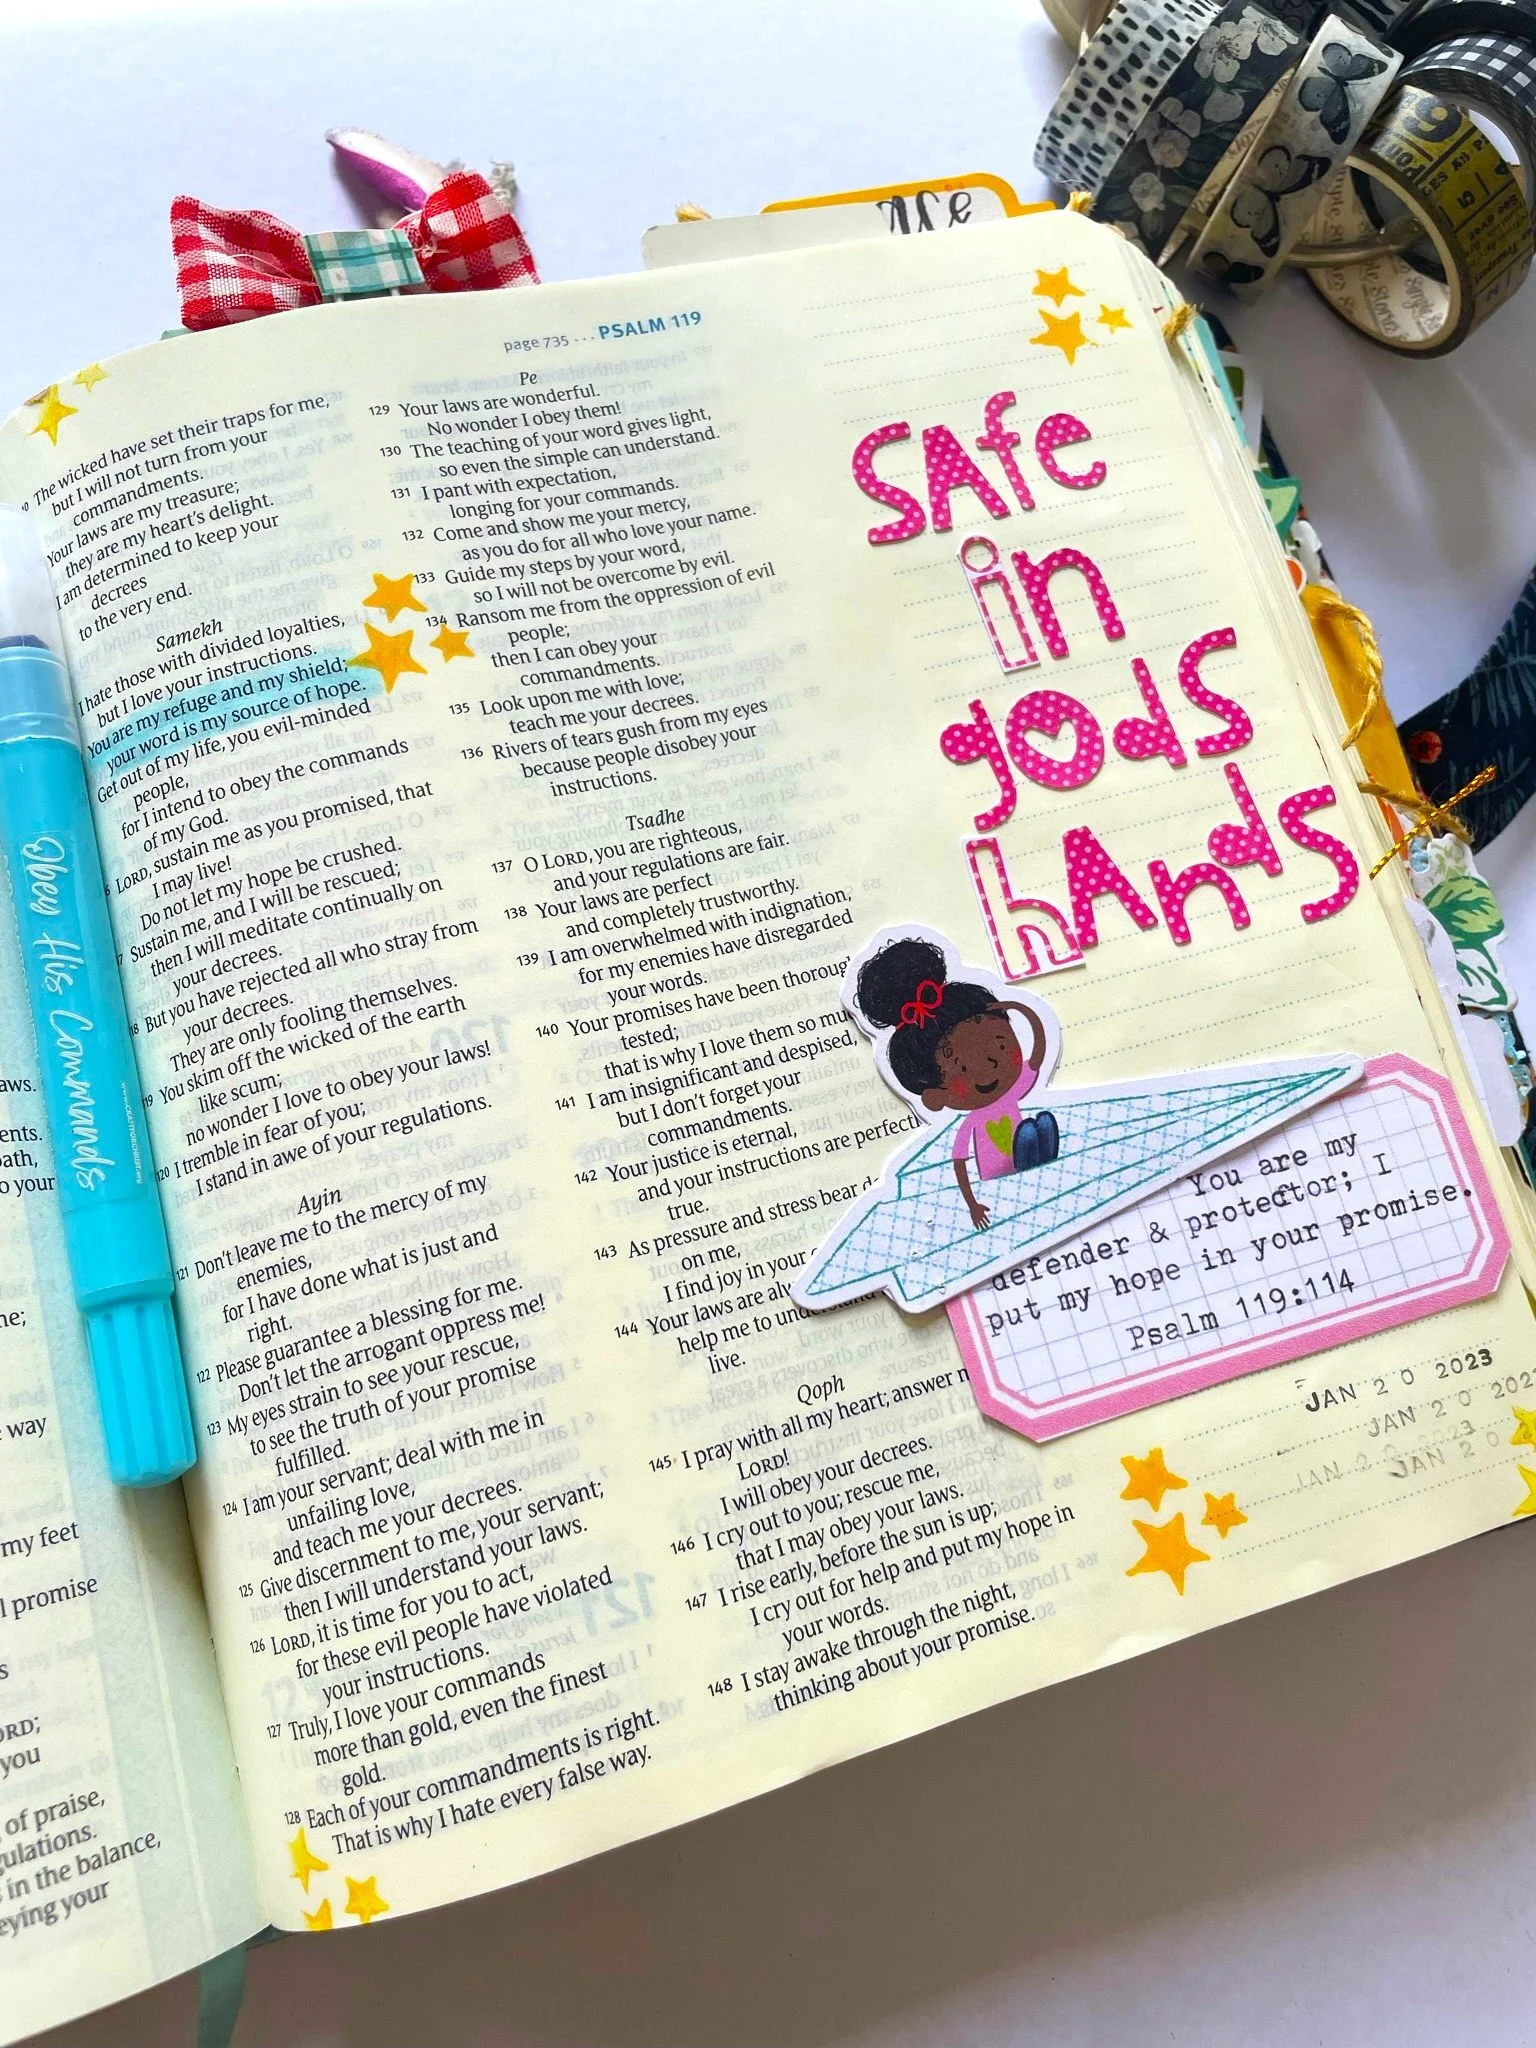 page 735 ... PSALM 119
The wicked have set their traps for me,
but I will not turn from your
commandments.
Your laws are my treasure;
they are my heart's delight.
I am determined to keep your
decrees
to the very end.
Samekh
I hate those with divided loyalties,
but I love your instructions.
You are my refuge and my shield;
your word is my source of hope.
Get out of my life, you evil-minded
people,
for I intend to obey the commands
of my God.
LORD, sustain me as you promised, that
I may live!
Do not let my hope be crushed.
Sustain me, and I will be rescued;
then I will meditate continually on
your decrees.
But you have rejected all who stray from
your decrees.
They are only fooling themselves.
You skim off the wicked of the earth
like scum;
no wonder I love to obey your laws!
120 I tremble in fear of you;
I stand in awe of your regulations.
Ayin
121 Don't leave me to the mercy of my
enemies,
for I have done what is just and
right.
122 Please guarantee a blessing for me.
Don't let the arrogant oppress me!
123 My eyes strain to see your rescue,
to see the truth of your promise
fulfilled.
124 I am your servant; deal with me in
unfailing love,
and teach me your decrees.
125 Give discernment to me, your servant;
then I will understand your laws.
126 LORD, it is time for you to act,
for these evil people have violated
your instructions.
127 Truly, I love your commands
more than gold, even the finest
gold.
128 Each of your commandments is right.
That is why I hate every false way.
Pe
129 Your laws are wonderful.
No wonder I obey them!
130 The teaching of your word gives light,
so even the simple can understand.
131 I pant with expectation,
longing for your commands.
132 Come and show me your mercy,
as you do for all who love your name.
133 Guide my steps by your word,
so I will not be overcome by evil.
134 Ransom me from the oppression of evil
people;
then I can obey your
commandments.
135 Look upon me with love;
teach me your decrees.
136 Rivers of tears gush from my eyes
because people disobey your
instructions.
Tsadhe
137 O LORD, you are righteous,
and your regulations are fair.
138 Your laws are perfect
and completely trustworthy.
139 I am overwhelmed with indignation,
for my enemies have disregarded
your words.
140 Your promises have been thorough
tested;
that is why I love them so mu
141 I am insignificant and despised,
but I don't forget your
commandments.
142 Your justice is eternal,
and your instructions are perfectl
true.
143 As pressure and stress bear d
on me,
I find joy in your
144 Your laws are alw
help me to understand
live.
Qoph
145 I pray with all my heart; answer m
LORD!
I will obey your decrees.
146 I cry out to you; rescue me,
that I may obey your laws.
147 I rise early, before the sun is up;
I cry out for help and put my hope in
your words.
148 I stay awake through the night,
thinking about your promise.
SAfe
in
gods
hAnds
You are my
defender & protector; I
put my hope in your promise.
Psalm 119:114
JAN 20 2023
JAN 20 202
JAN 2 23
JAN 20
Obey His Commands
www.craftforchrist.org
aws.
ents.
path,
o your
ne;
e way
my feet
I promise
s
ORD;
you
of praise,
gulations.
s in the balance,
eying your